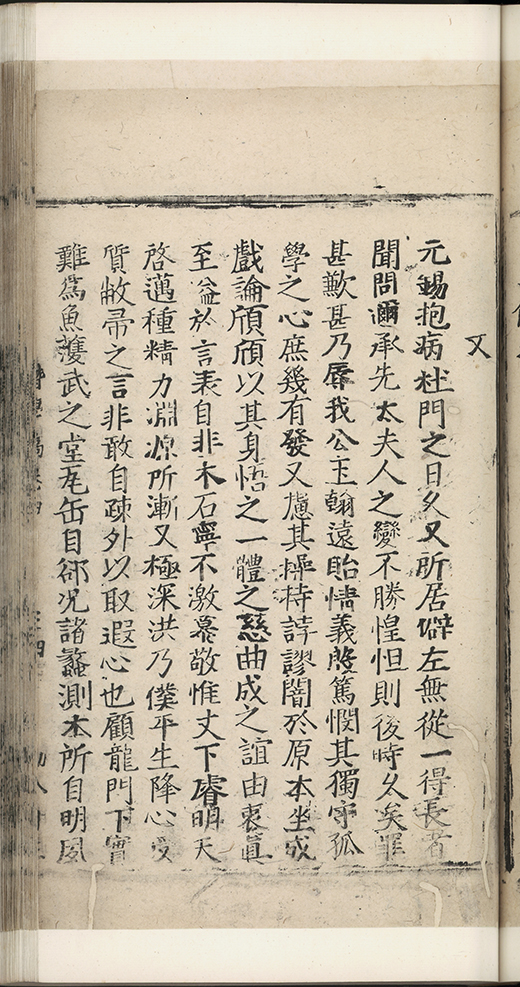 又
元錫抱病杜門之日久又所居僻左無從一得長者
聞問邇承先太夫人之變不勝惶怛則後時久矣罪
甚歉甚乃辱我公玉翰遠貽情義殷篤憫其獨守孤
學之心庶幾有發又慮其操持諄謬闇於原本坐成
戲論頎頎以其身悟之一體之慈曲成之誼由衷真
至溢於言表自非木石寧不激慕敬惟丈下睿明天
啓邁種精力淵源所漸又極深洪乃僕平生降心受
質敝帚之言非敢自疎外以取遐心也顧龍門下實
難為魚蠖武之堂瓦缶自鄙况諸蠡測本所自明夙